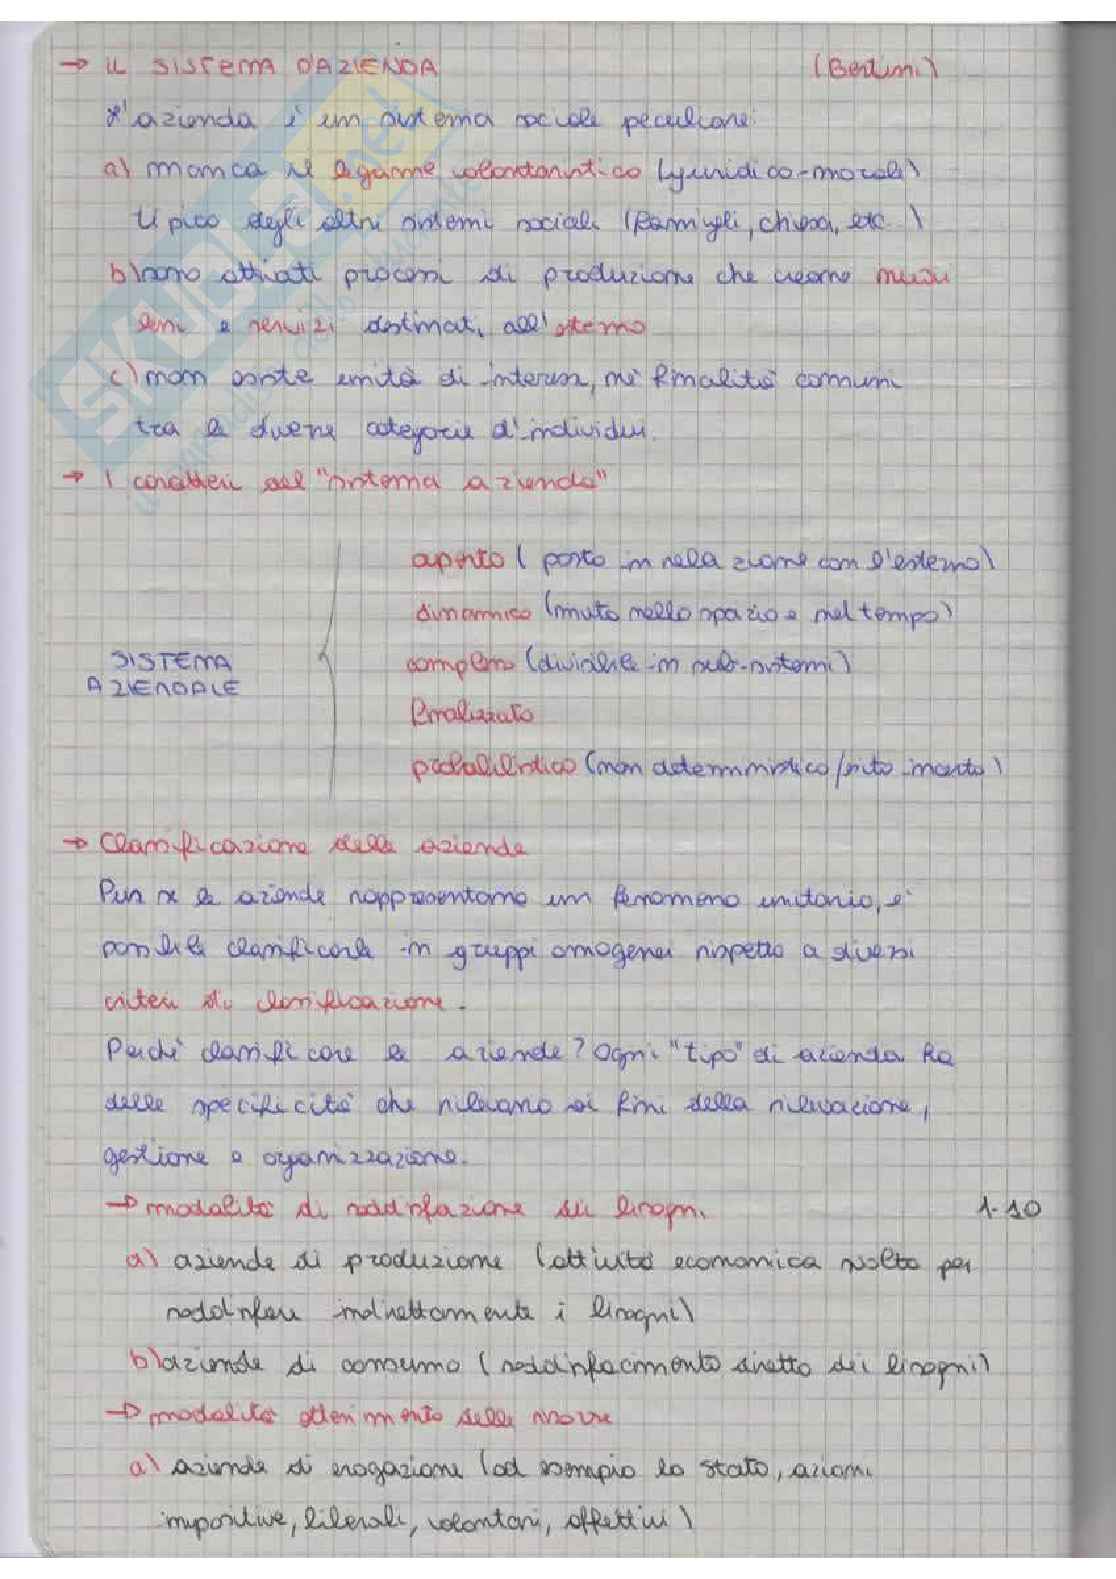 → IL SISTEMA D'AZIENDA (Bertini)
L'azienda è un sistema sociale peculiare:
a) manca il legame volontaristico (giuridico-morale)
tipico degli altri sistemi sociali (famiglie, chiesa, etc..)
b) sono attivati processi di produzione che creano nuovi
beni e servizi destinati all'esterno
c) non esiste unità di interessi, né finalità comuni
tra le diverse categorie d'individui.
→ I caratteri del "sistema azienda"
aperto (posto in relazione con l'esterno)
dinamico (muta nello spazio e nel tempo)
SISTEMA AZIENDALE
complesso (divisibile in sub-sistemi)
finalizzato
probabilistico (non deterministico/sito incerto)
→ Classificazione delle aziende
Pur se le aziende rappresentano un fenomeno unitario, è
possibile classificarle in gruppi omogenei rispetto a diversi
criteri di classificazione.
Perché classificare le aziende? Ogni "tipo" di azienda ha
delle specificità che rilevano ai fini della rilevazione,
gestione e organizzazione.
→ modalità di soddisfazione dei bisogni 1-10
a) aziende di produzione (attività economica svolta per
soddisfare indirettamente i bisogni)
b) aziende di consumo (soddisfacimento diretto dei bisogni)
→ modalità ottenimento delle risorse
a) aziende di erogazione (ad esempio lo stato, azioni
impositive, liberali, volontari, affettivi)
SKUOLA.net